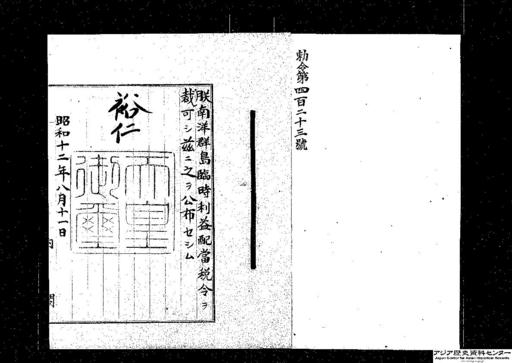 勅令第四百二十三號
朕南洋群島臨時利益配當税令ヲ
裁可シ茲ニ之ヲ公布セシム
裕仁
天皇
御璽
昭和十二年八月十一日
内閣
アジア歴史資料センター
Japan Center for Asian Historical Records